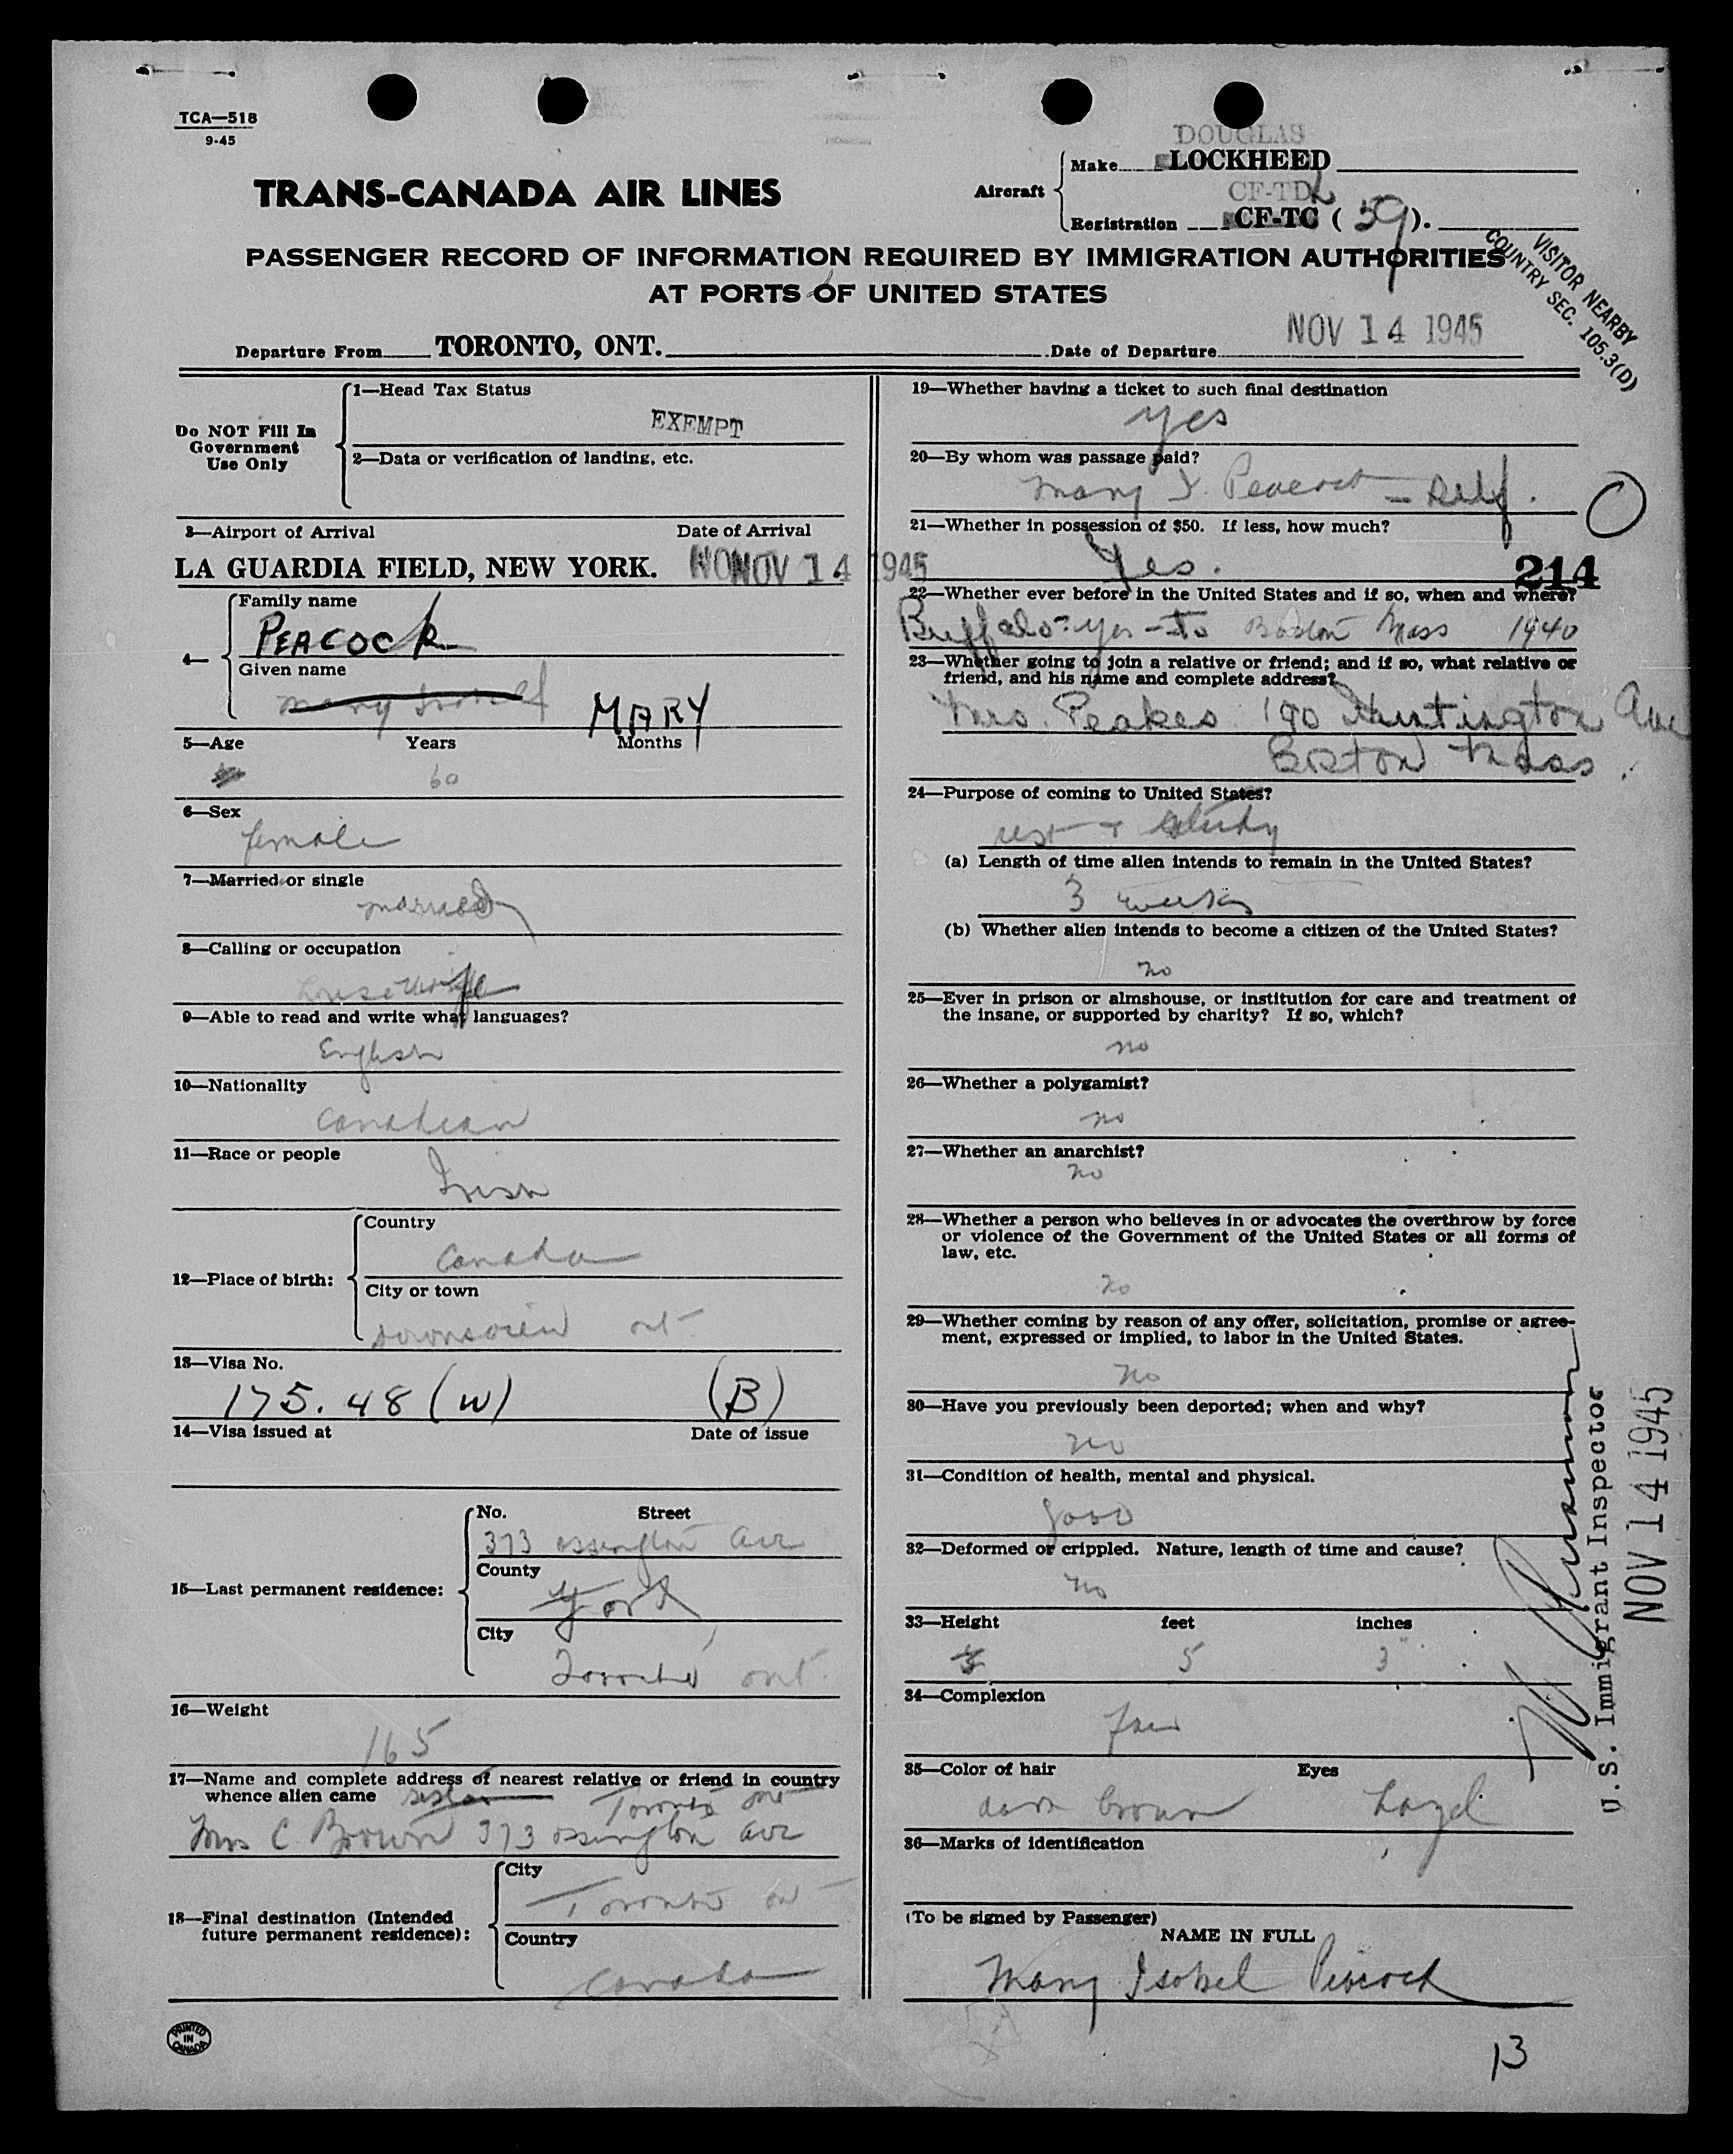 TCA—518
9-45
DOUGLAS
Make LOCKHEED
TRANS-CANADA AIR LINES
Aircraft
CF-TD
Registration CF-TC ( 59 ).
PASSENGER RECORD OF INFORMATION REQUIRED BY IMMIGRATION AUTHORITIES
AT PORTS OF UNITED STATES
VISITOR NEARBY
COUNTRY SEC. 105.3(D)
Departure From TORONTO, ONT. Date of Departure NOV 14 1945
Do NOT Fill In
Government
Use Only
1—Head Tax Status
EXEMPT
2—Data or verification of landing, etc.
3—Airport of Arrival Date of Arrival
LA GUARDIA FIELD, NEW YORK. NOV 14 1945
4—
Family name
PEACOCK
Given name
MARY
5—Age Years Months
60
6—Sex
female
7—Married or single
married
8—Calling or occupation
housewife
9—Able to read and write what languages?
English
10—Nationality
Canadian
11—Race or people
Irish
12—Place of birth:
Country
Canada
City or town
Downsview Ont.
13—Visa No.
175.48 (W) (B)
14—Visa issued at Date of issue
15—Last permanent residence:
No. Street
373 Ossington Ave
County
York
City
Toronto Ont.
16—Weight
165
17—Name and complete address of nearest relative or friend in country
whence alien came sister Toronto Ont
Mrs C. Brown 373 Ossington Ave
18—Final destination (Intended
future permanent residence):
City
Toronto Ont
Country
Canada
PRINTED
IN
CANADA
19—Whether having a ticket to such final destination
yes
20—By whom was passage paid?
Mary I. Peacock — Self.
21—Whether in possession of $50. If less, how much?
Yes.
214
22—Whether ever before in the United States and if so, when and where?
Buffalo - yes - to Boston Mass 1940
23—Whether going to join a relative or friend; and if so, what relative or
friend, and his name and complete address?
Mrs. Peakes 190 Huntington Ave
Boston Mass.
24—Purpose of coming to United States?
rest + study
(a) Length of time alien intends to remain in the United States?
3 weeks
(b) Whether alien intends to become a citizen of the United States?
no
25—Ever in prison or almshouse, or institution for care and treatment of
the insane, or supported by charity? If so, which?
no
26—Whether a polygamist?
no
27—Whether an anarchist?
no
28—Whether a person who believes in or advocates the overthrow by force
or violence of the Government of the United States or all forms of
law, etc.
no
29—Whether coming by reason of any offer, solicitation, promise or agree-
ment, expressed or implied, to labor in the United States.
no
30—Have you previously been deported; when and why?
no
31—Condition of health, mental and physical.
good
32—Deformed or crippled. Nature, length of time and cause?
no
33—Height feet inches
5 3"
34—Complexion
fair
35—Color of hair Eyes
dark brown hazel
36—Marks of identification
(To be signed by Passenger)
NAME IN FULL
Mary Isobel Peacock
13
U.S. Immigrant Inspector
NOV 14 1945